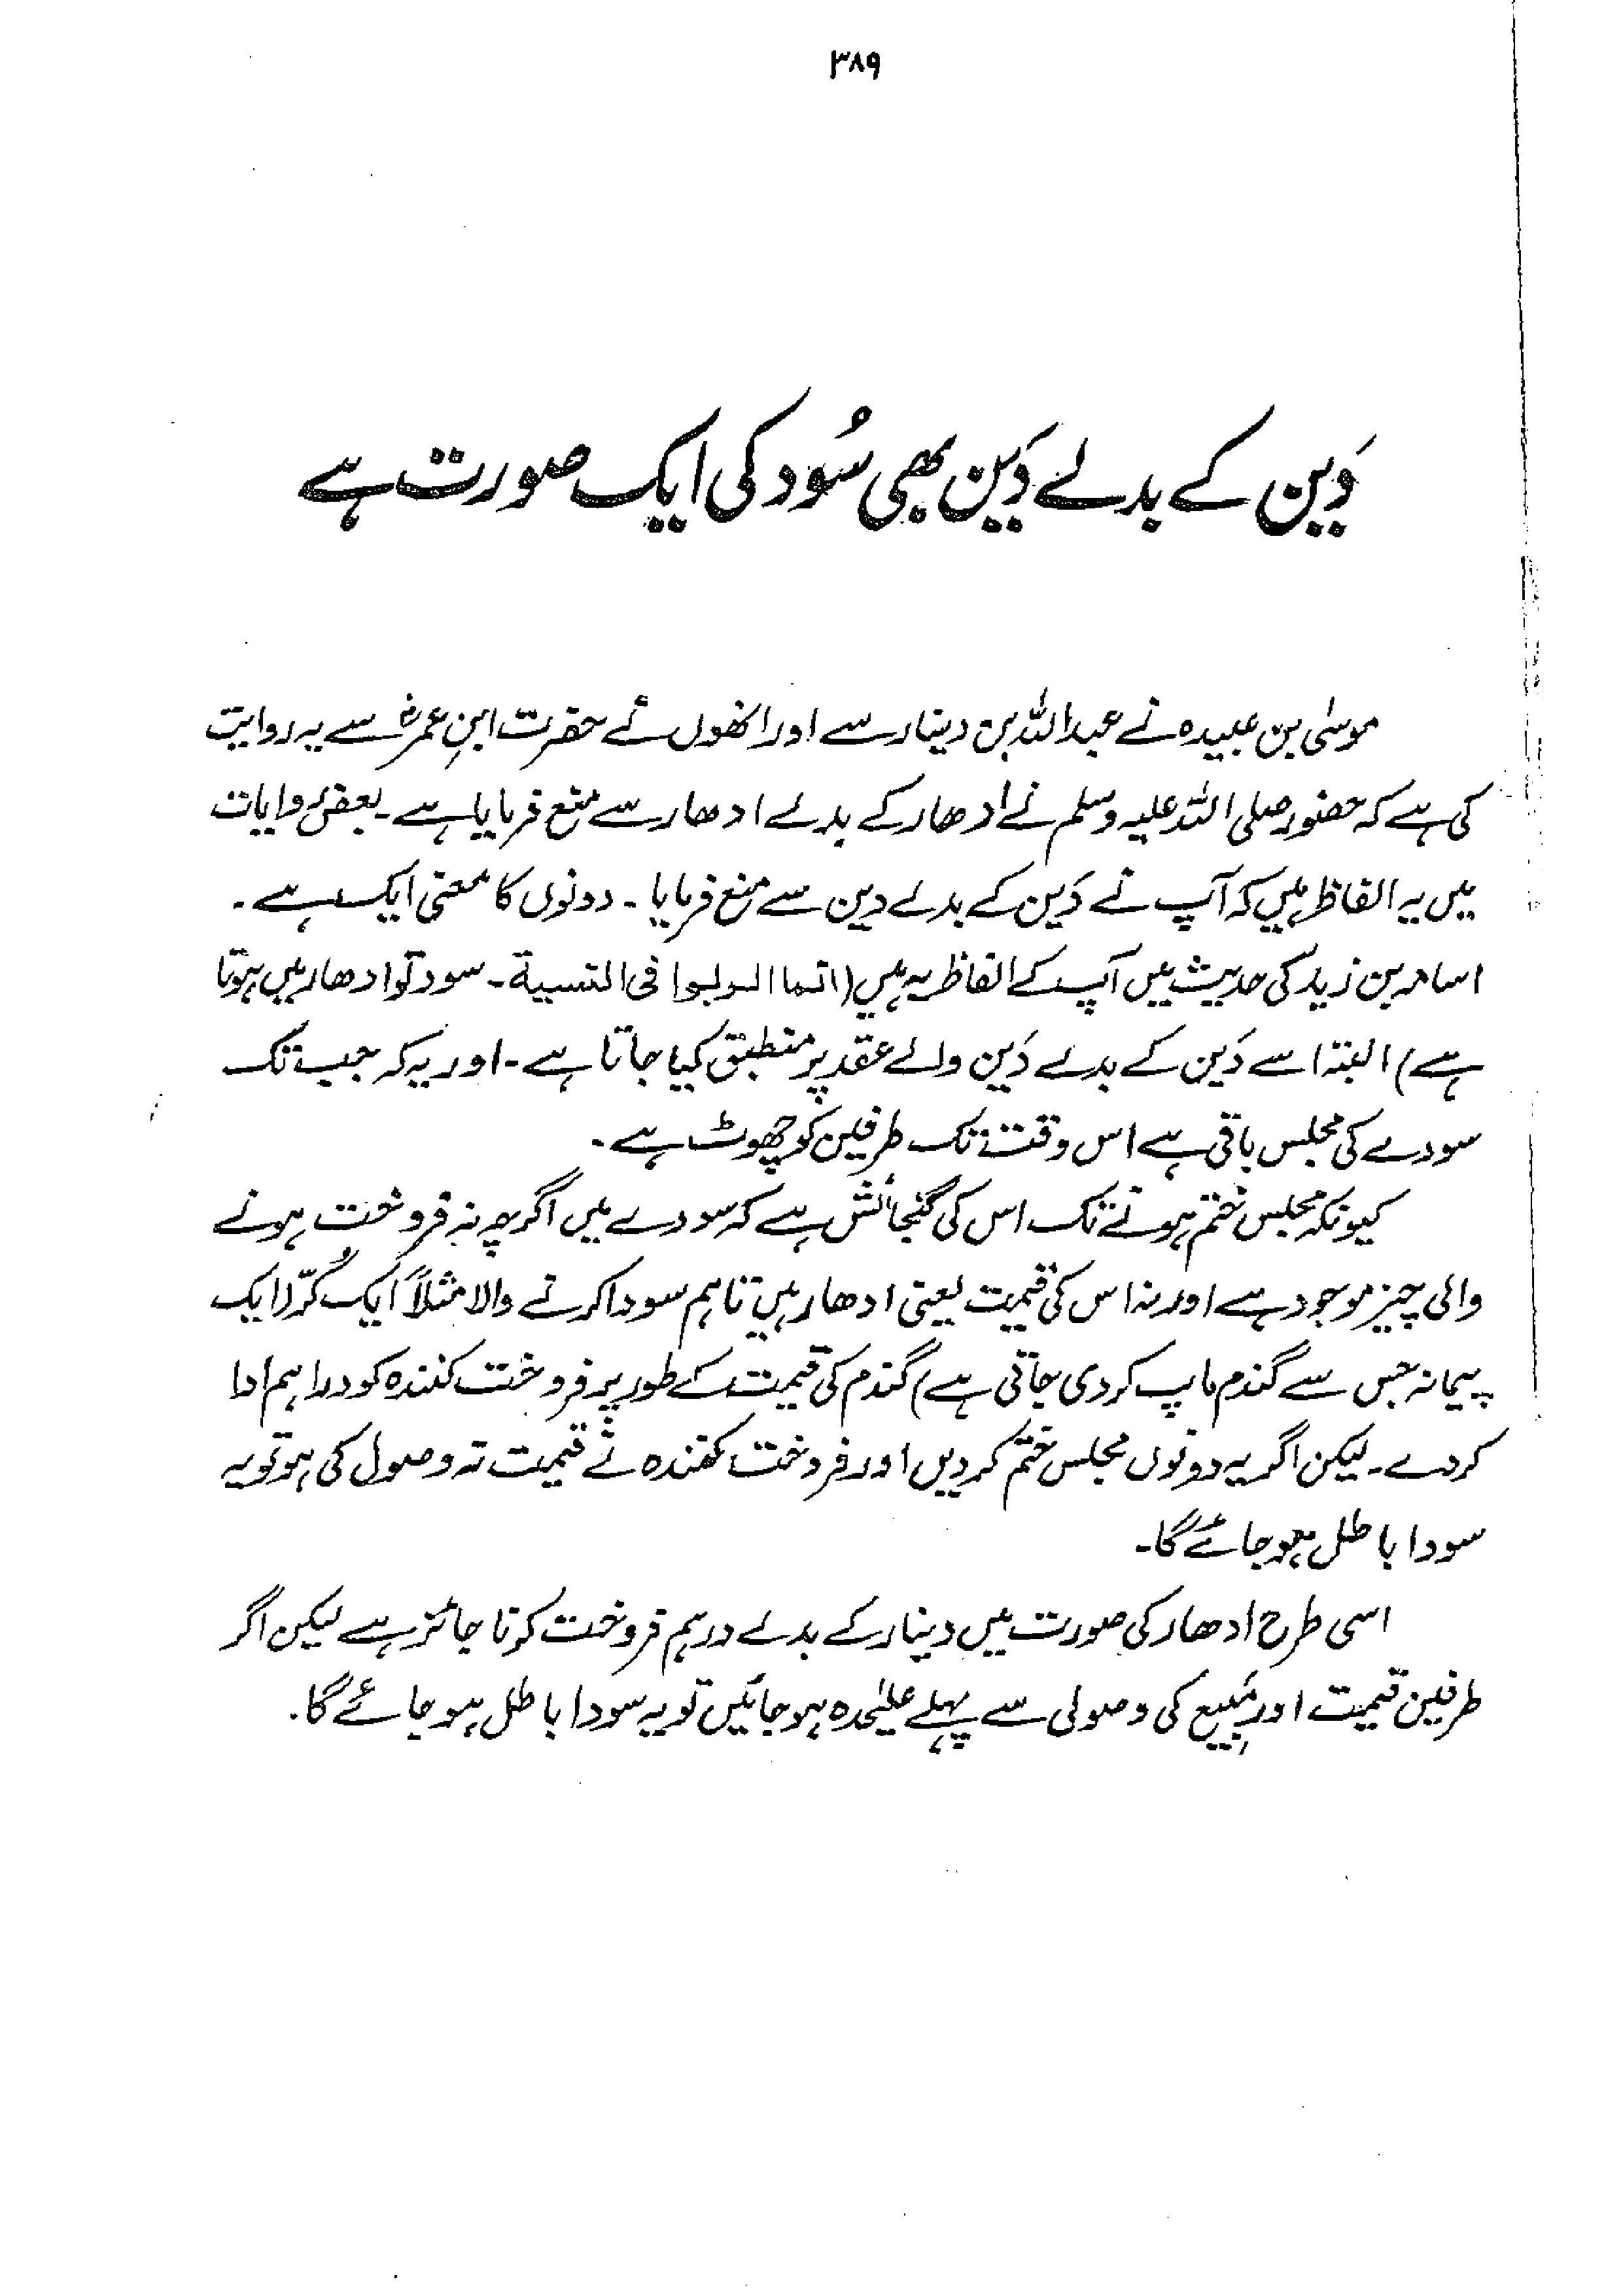 ۳۸۹
دَین کے بدلے دَین بھی سُود کی ایک صورت ہے
موسٰی بن عبیدہ نے عبداللہ بن دینار سے اور انھوں نے حضرت ابنِ عمرؓ سے یہ روایت
کی ہے کہ حضور صلی اللہ علیہ وسلم نے ادھار کے بدلے ادھار سے منع فرمایا ہے۔ بعض روایات
میں یہ الفاظ ہیں کہ آپ نے دَین کے بدلے دین سے منع فرمایا۔ دونوں کا معنی ایک ہے۔
اسامہ بن زید کی حدیث میں آپ کے الفاظ یہ ہیں (انما الربوا فی النسیۃ۔ سود تو ادھار میں ہوتا
ہے) البتہ اسے دَین کے بدلے دَین والے عقد پر منطبق کیا جاتا ہے۔ اور یہ کہ جب تک
سودے کی مجلس باقی ہے اس وقت تک طرفین کو چھوٹ ہے۔
کیونکہ مجلس ختم ہونے تک اس کی گنجائش ہے کہ سودے میں اگرچہ نہ فروخت ہونے
والی چیز موجود ہے اور نہ اس کی قیمت یعنی ادھار ہیں تاہم سودا کرنے والا مثلاً ایک کُرّ (ایک
پیمانہ جس سے گندم ماپ کر دی جاتی ہے) گندم کی قیمت کے طور پر فروخت کنندہ کو دراہم ادا
کردے۔ لیکن اگر یہ دونوں مجلس ختم کر دیں اور فروخت کنندہ نے قیمت نہ وصول کی ہو تو یہ
سودا باطل ہو جائے گا۔
اسی طرح ادھار کی صورت میں دینار کے بدلے درہم فروخت کرنا جائز ہے لیکن اگر
طرفین قیمت اور مَبیع کی وصولی سے پہلے علیٰحدہ ہو جائیں تو یہ سودا باطل ہو جائے گا۔